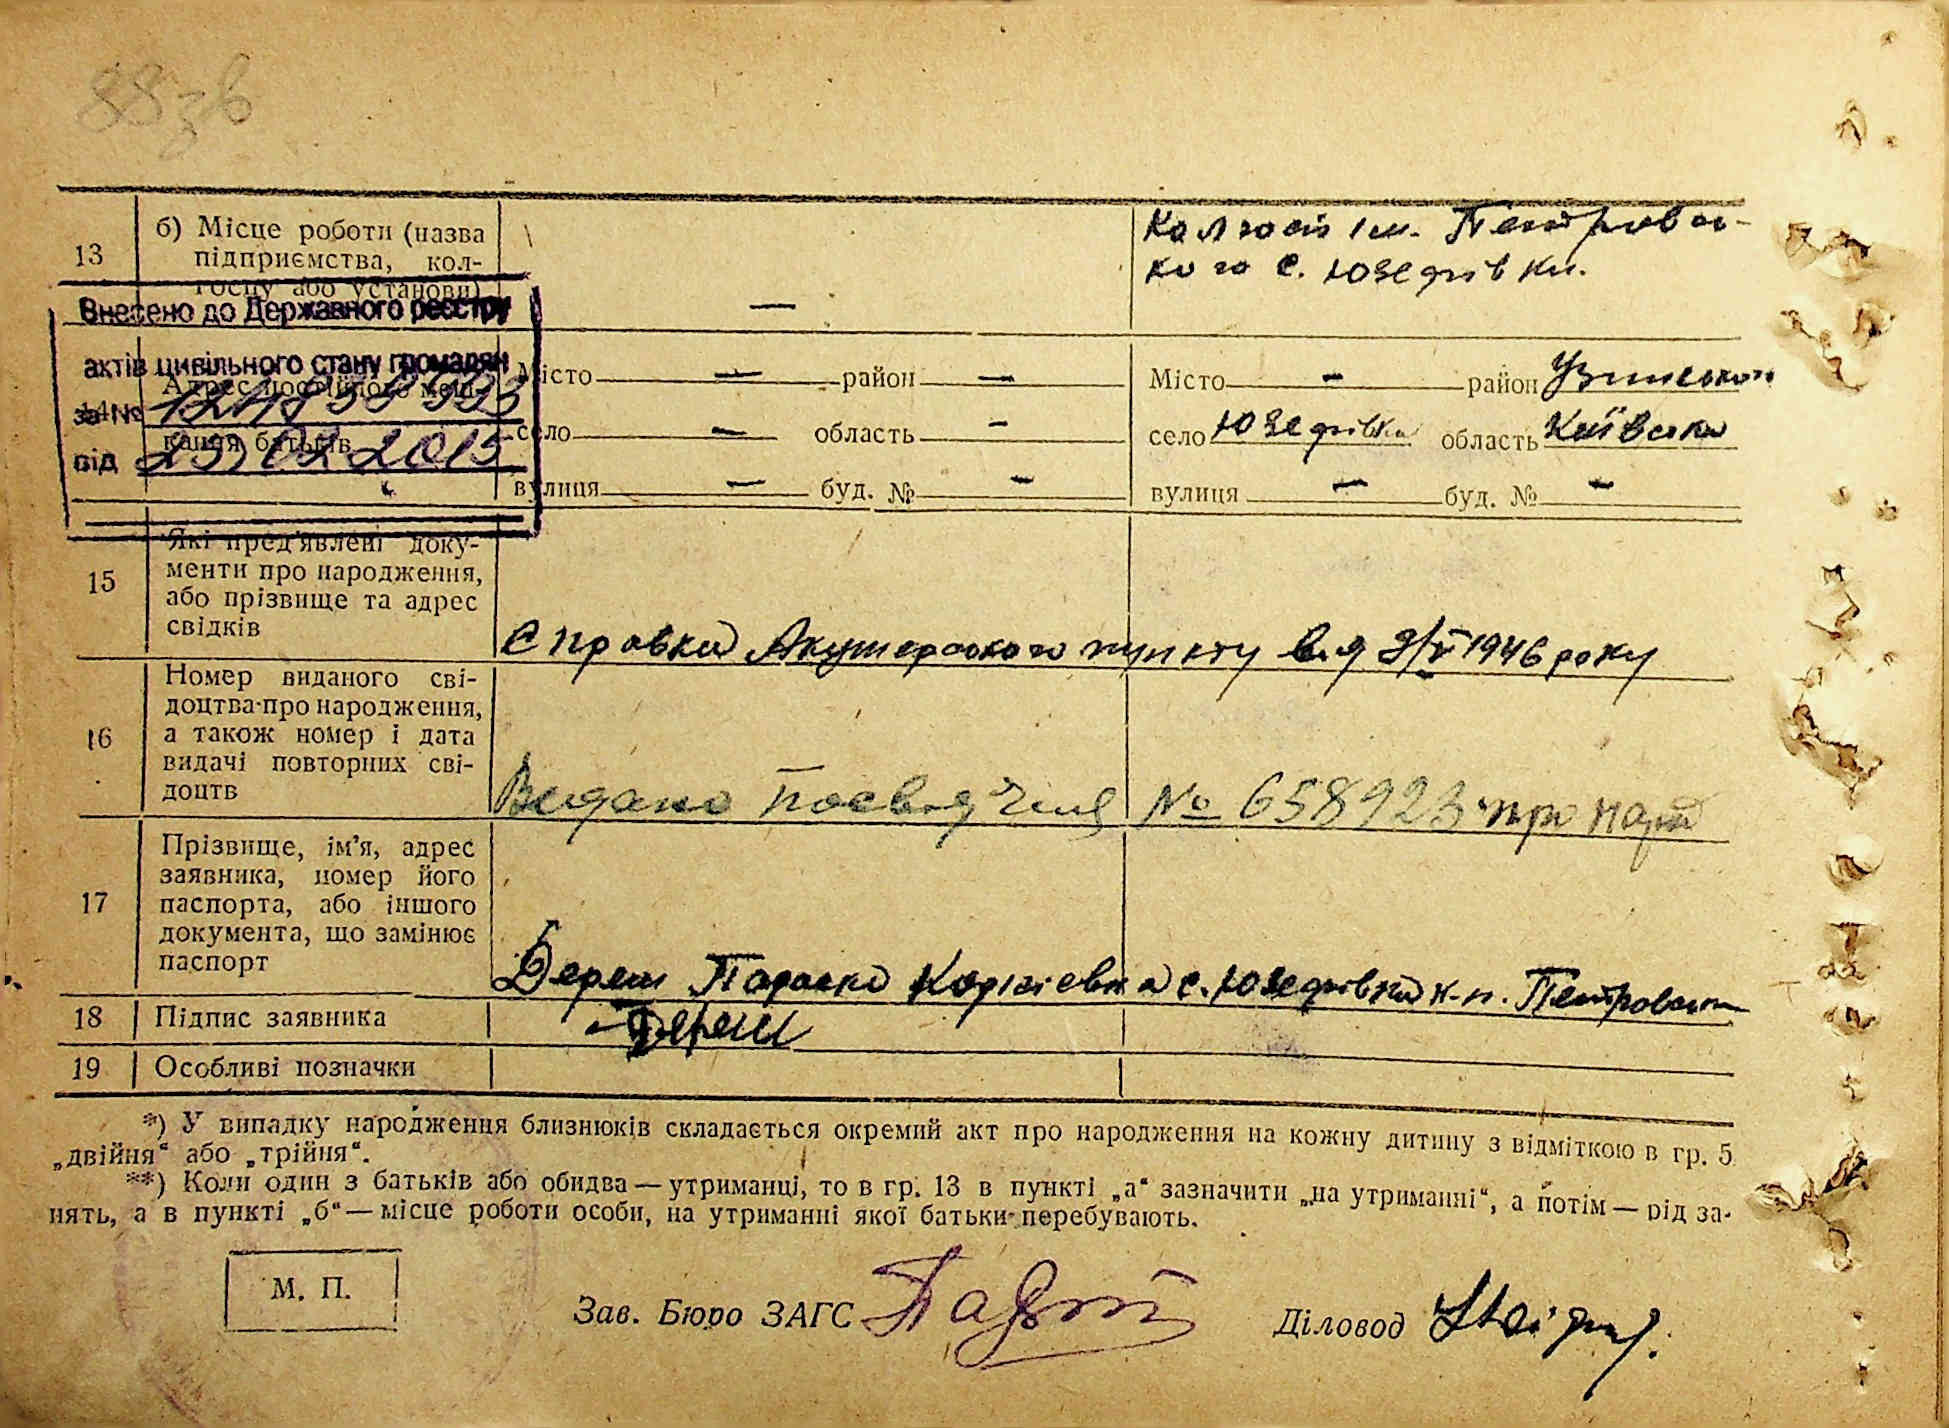 88зв
13
б) Місце роботи (назва
підприємства, кол-
госпу або установи)
—
Колгосп ім. Петровсь-
кого с. Юзефівки.
Внесено до Державного реєстру
актів цивільного стану громадян
за №
від 25 02 2015
14
Адрес постійного меш-
кання батьків
Місто — район —
село — область —
вулиця — буд. № —
Місто — район Узинський
село Юзефівка область Київська
вулиця — буд. № —
15
Які пред'явлені доку-
менти про народження,
або прізвище та адрес
свідків
Справка Акушерського пункту від 9/V 1946 року
16
Номер виданого сві-
доцтва про народження,
а також номер і дата
видачі повторних сві-
доцтв
Видано посвідчення № 658923 про нар
17
Прізвище, ім'я, адрес
заявника, номер його
паспорта, або іншого
документа, що замінює
паспорт
Дереш Параска с. Юзефівка к-п. Петровського
18
Підпис заявника
Дереш
19
Особливі позначки
*) У випадку народження близнюків складається окремий акт про народження на кожну дитину з відміткою в гр. 5
„двійня“ або „трійня“.
**) Коли один з батьків або обидва — утриманці, то в гр. 13 в пункті „а“ зазначити „на утриманні“, а потім — рід за-
нять, а в пункті „б“ — місце роботи особи, на утриманні якої батьки перебувають.
М. П.
Зав. Бюро ЗАГС
Діловод